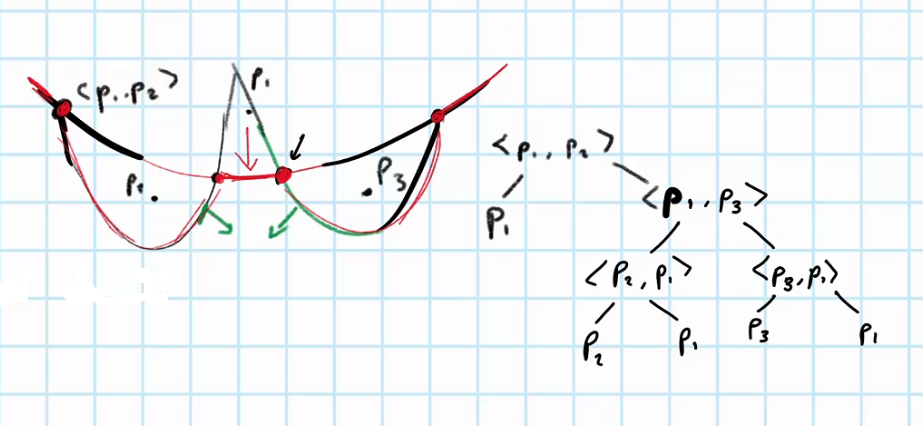 <p₁, p₂>
p₁
p₂
p₃
<p₁, p₂>
p₁
<p₁, p₃>
<p₂, p₁>
<p₃, p₁>
p₂
p₁
p₃
p₁